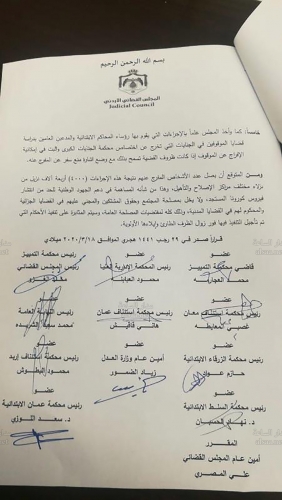 بسم الله الرحمن الرحيم
المجلس القضائي الأردني
Judicial Council
خامساً: كما وأخذ المجلس علماً بالإجراءات التي يقوم بها رؤساء المحاكم الابتدائية والمدعين العامين بدراسة
قضايا الموقوفين في الجنايات التي تخرج عن اختصاص محكمة الجنايات الكبرى والبت في إمكانية
الإفراج عن الموقوف إذا كانت ظروف القضية تسمح بذلك مع وضع إشارة منع سفر على المفرج عنه.
ومن المتوقع أن يصل عدد الأشخاص المفرج عنهم نتيجة هذه الإجراءات (٤٠٠٠) أربعة آلاف نزيل من
نزلاء مختلف مراكز الإصلاح والتأهيل، وهذا من شأنه المساهمة في دعم الجهود الوطنية للحد من انتشار
فيروس كورونا المستجد، ولا يخل بمصالحة المجتمع وحقوق المشتكين والمجني عليهم في القضايا الجزائية
والمحكوم لهم في القضايا المدنية، وذلك كله لمقتضيات المصلحة العامة، وسيتم المثابرة على تنفيذ الأحكام التي
تم تأجيل التنفيذ فيها فور زوال الظرف الطارئ وإيلاءها الأولوية.
قراراً صدر في ٢٣ رجب ١٤٤١ هجري الموافق ٢٠٢٠/٣/١٨ ميلادي
عضو عضو رئيس محكمة التمييز
قاضي محكمة التمييز رئيس المحكمة الإدارية العليا رئيس المجلس القضائي
محمد العجارمة محمود العبابنة محمد الغزو
عضو عضو عضو
رئيس محكمة استئناف معان رئيس محكمة استئناف عمان رئيس النيابة العامة
المعايطه هاني قاقيش محمد سعيد الشريده
عضو عضو عضو
رئيس محكمة الزرقاء الابتدائية أمين عام وزارة العدل رئيس محكمة استئناف إربد
حازم زياد الضمور محمود البطوش
عضو عضو
رئيس محكمة السلط الابتدائية رئيس محكمة عمان الابتدائية
د. نهار الحسبان د. سعد اللوزي
المقرر
أمين عام المجلس القضائي
علي المصري